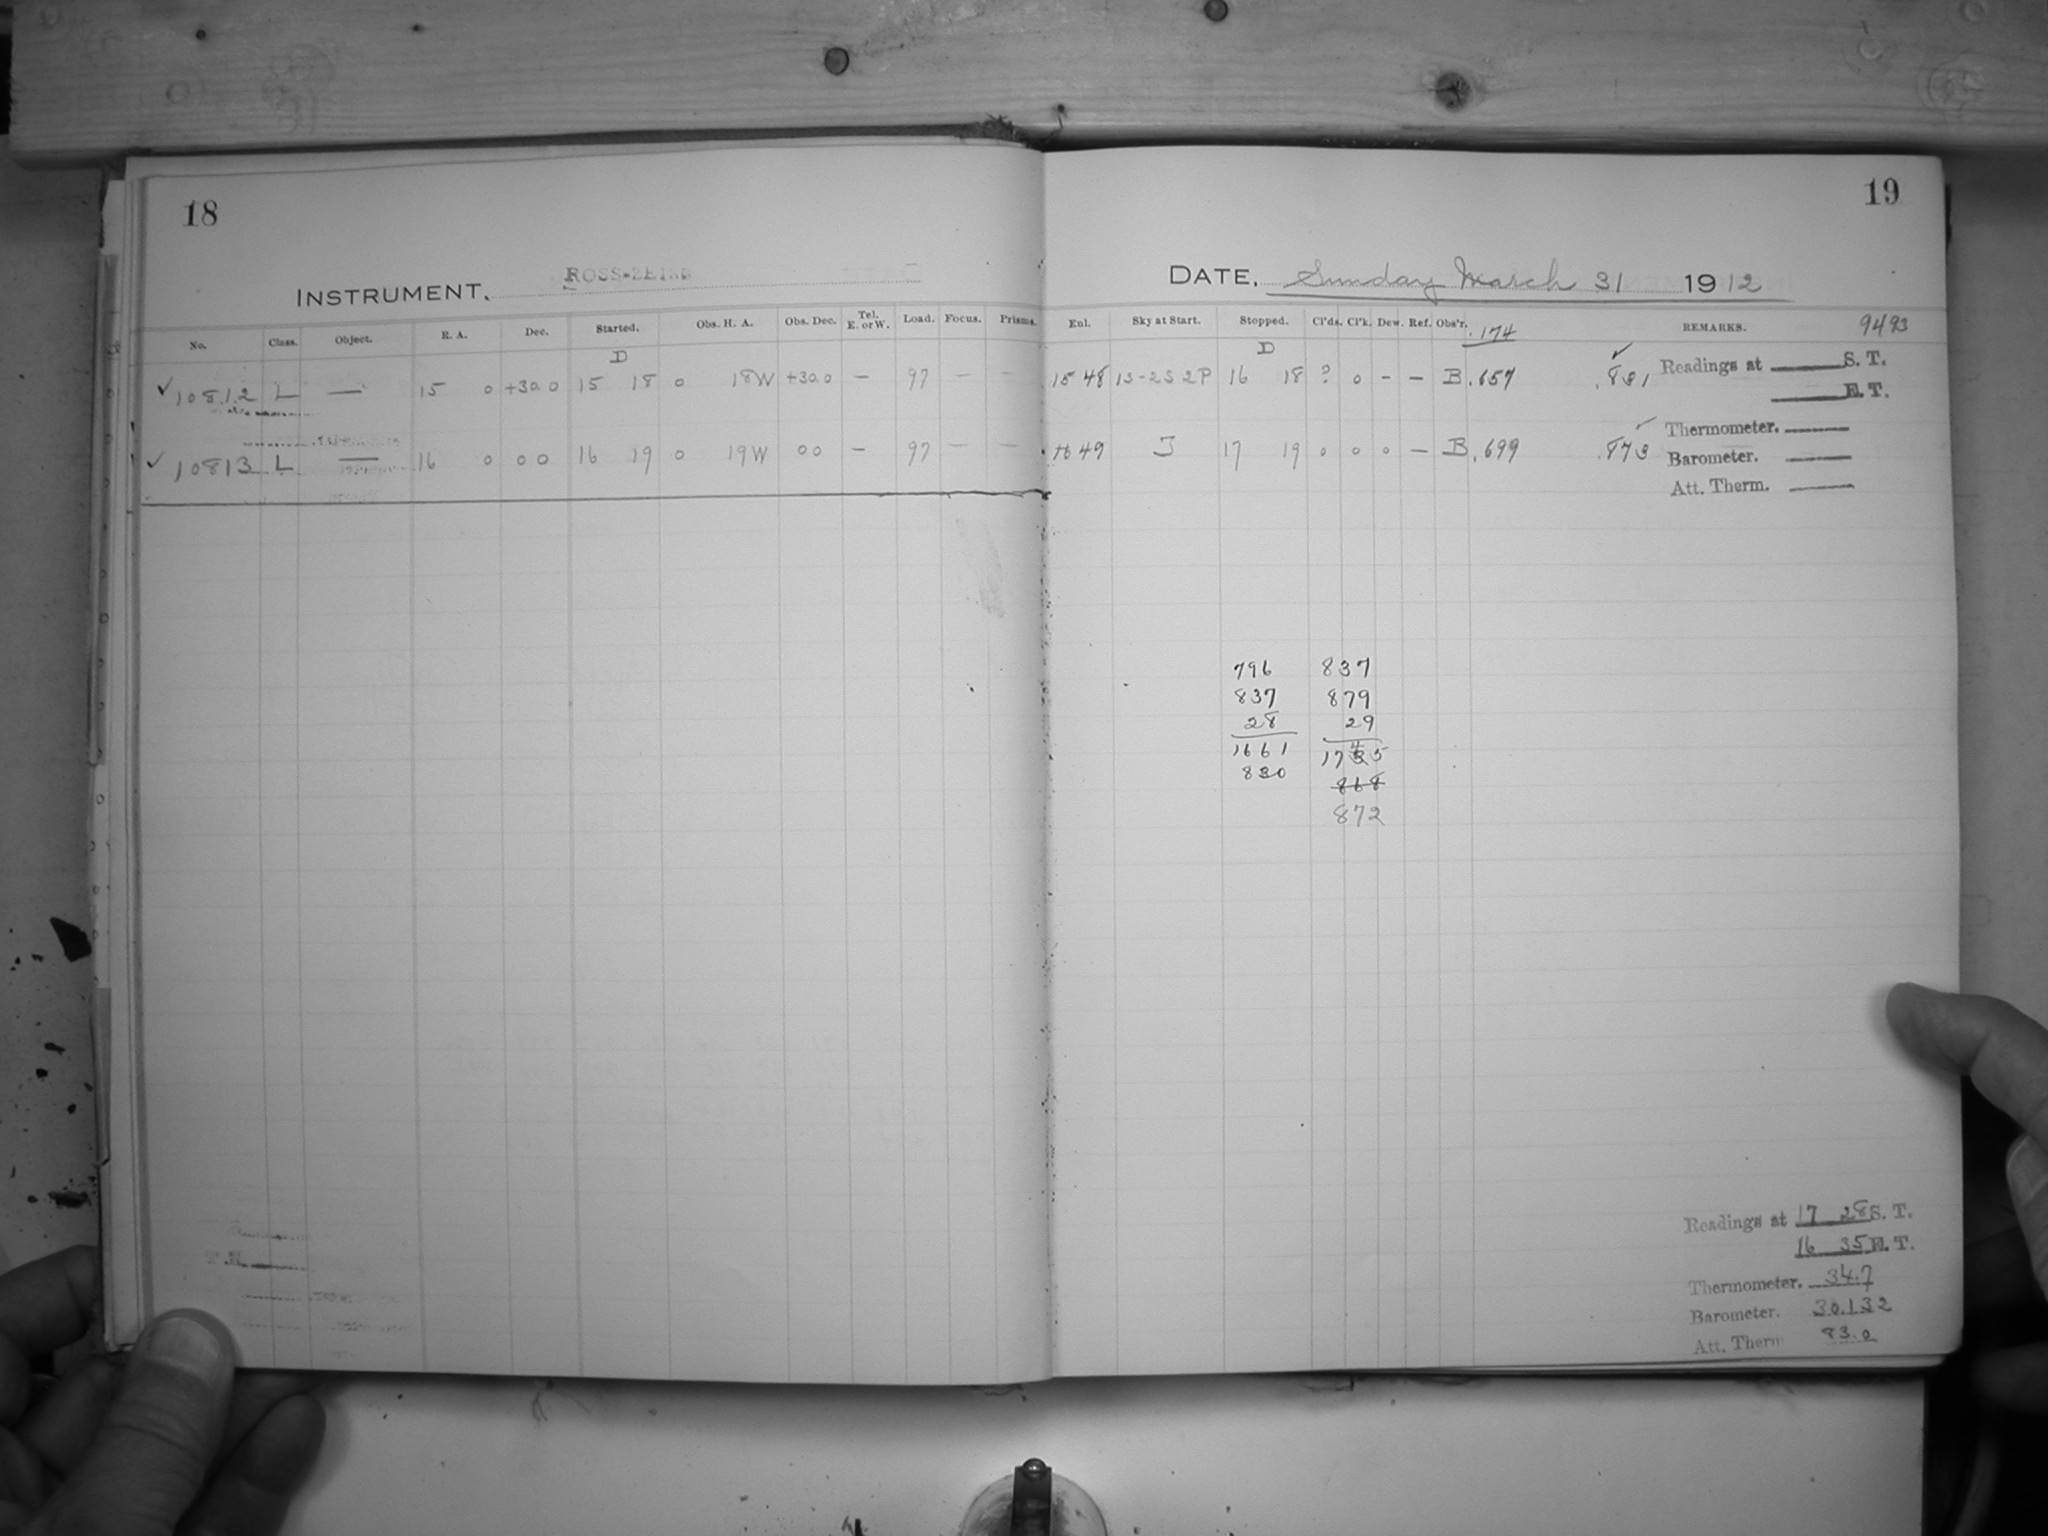 18
INSTRUMENT. ROSS-ZEISS
No. Class. Object. R. A. Dec. Started. Obs. H. A. Obs. Dec. Tel. E. or W. Load. Focus. Prisms.
D
✓ 10812 L — 15 0 +30 0 15 18 0 18W +30 0 — 97 — —
✓ 10813 L — 16 0 0 0 16 19 0 19W 0 0 — 97 — —
19
DATE. Sunday March 31 1912
Eul. Sky at Start. Stopped. Cl'ds. Cl'k. Dew. Ref. Obs'r. .174 REMARKS. 9493
D
15 48 1S-2S 2P 16 18 ? 0 - - B .657 .831
16 49 J 17 19 0 0 0 — B .699 .873
Readings at S. T.
H. T.
Thermometer.
Barometer.
Att. Therm.
796
837
28
1661
830
837
879
29
1745
868
872
Readings at 17 28 S. T.
16 35 H. T.
Thermometer. 34.7
Barometer. 30.132
Att. Therm 83.0